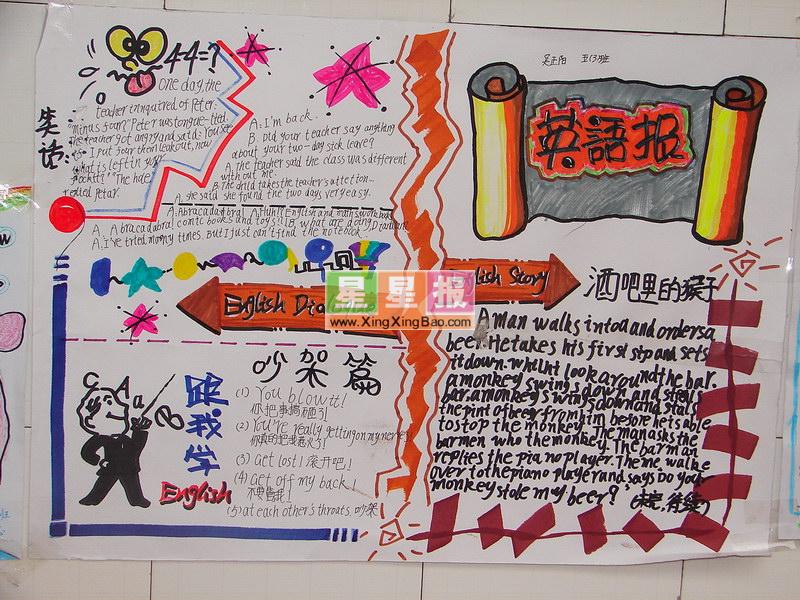 4-4=?
One day, the
teacher
of Peter.
"minus four" Peter was tongue-tied
The teacher got angry and said: You see
if I put four then leakout, now
what is left in your
pocket" "The hole"
Petar.
笑话:
A: I'm back.
B Did your teacher say anything
about your two-day sick leave?
A the teacher said the class was different
with out me.
B the child takes the teacher's
A: she said she found the two days very easy.
A: Abracadabra! A:
English and maths
A. Abracadabra! comic books and toys!!! B. what are doing
A. I've tried many times, but I just can't find the notebook
English
星星报
www.XingXingBao.com
跟我学
English
吵架篇
(1) You blow it!
你把事搞砸了!
(2) You're really getting on my nerves!
(3) Get lost! 滚开吧!
(4) Get off my back!
(5) at each other's throats 吵架
五(3)班
英語报
English Story
酒吧里的猴子
A man walks into a and orders a
beer. He takes his first stp and sets
it down. whilht look around the bar.
a monkey swings down and steals
bar. a monkey swings down and stals
the pint of beer from him before he is able
to stop the monkey. The man asks the
barmen who the monkey. The barman
replies the piano player. The me walke
over to the piano player and says Do your
monkey stole my beer? (未完,待续)